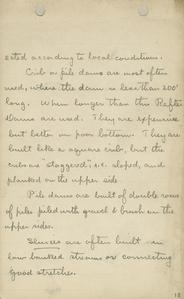 acted according to local conditions.
Crib or pile dams are most often
used, where the dam is less than 200'
long. When longer than this Rafter
Dams are used. They are expensive
but better on poor bottom. They are
built like a square crib, but the
cribs are "staggered", i.e. sloped, and
planked on the upper side.
Pile dams are built of double rows
of piles piled with gravel & brush on the
upper sides.
Sluices are often built in
low banked streams or connecting
good stretches.
18